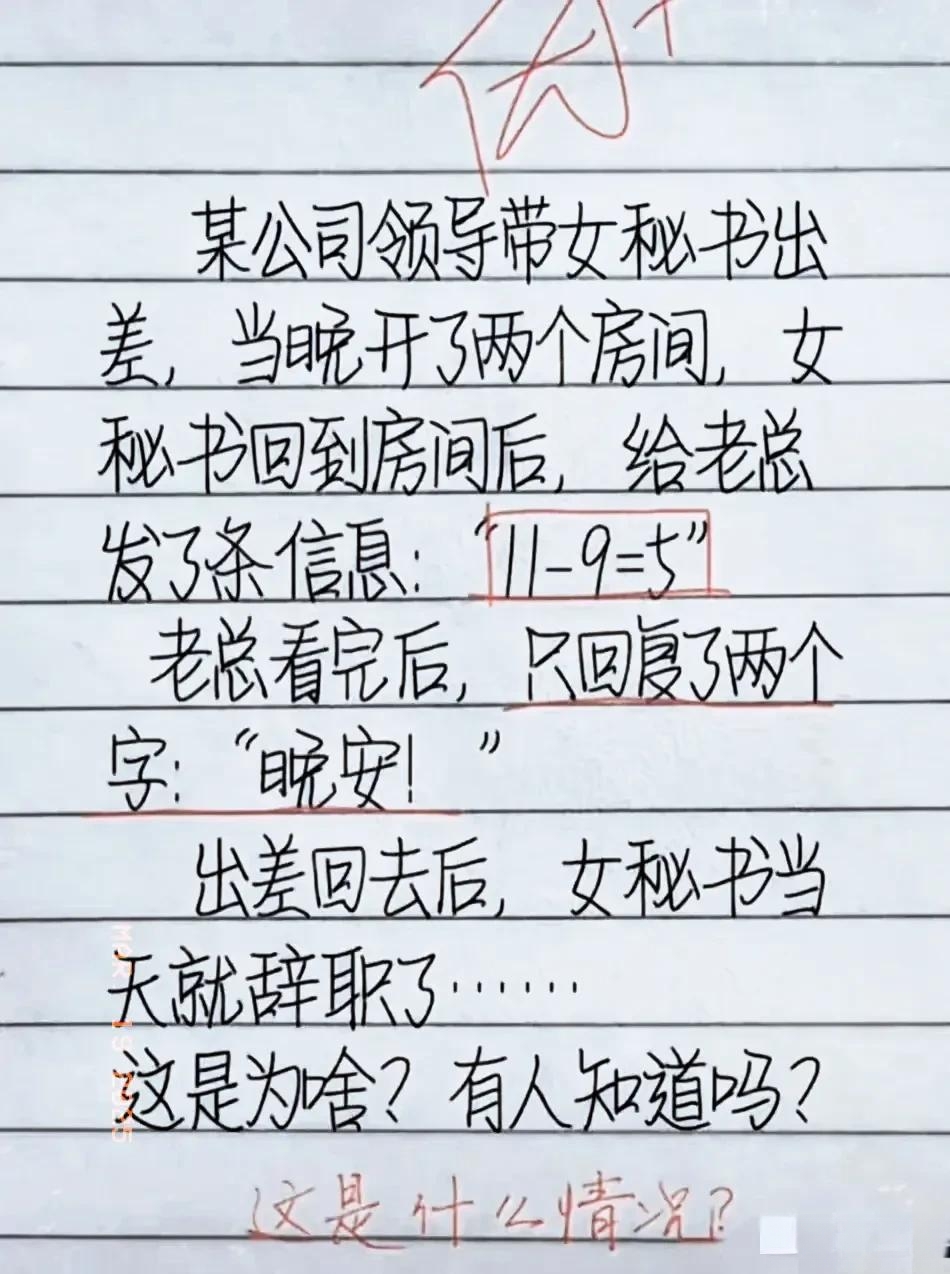 优+
某公司领导带女秘书出
差，当晚开了两个房间，女
秘书回到房间后，给老总
发了条信息：“11-9=5”
老总看完后，只回复了两个
字：“晚安！”
出差回去后，女秘书当
天就辞职了……
这是为啥？有人知道吗？
这是什么情况？